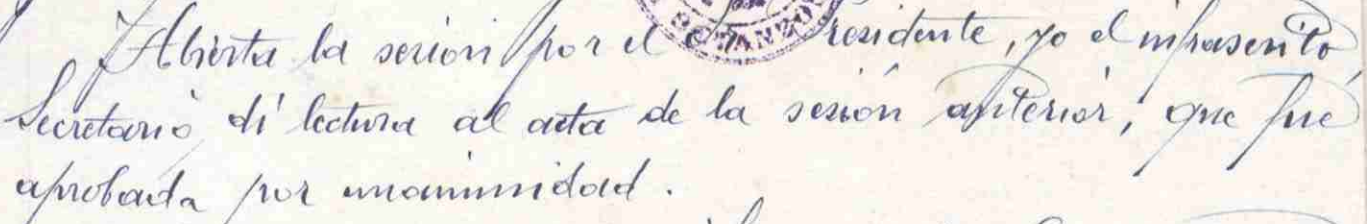 Abierta la sesión por el Sr. Presidente, yo el infrascrito
Secretario dí lectura al acta de la sesión anterior, que fué
aprobada por unanimidad.